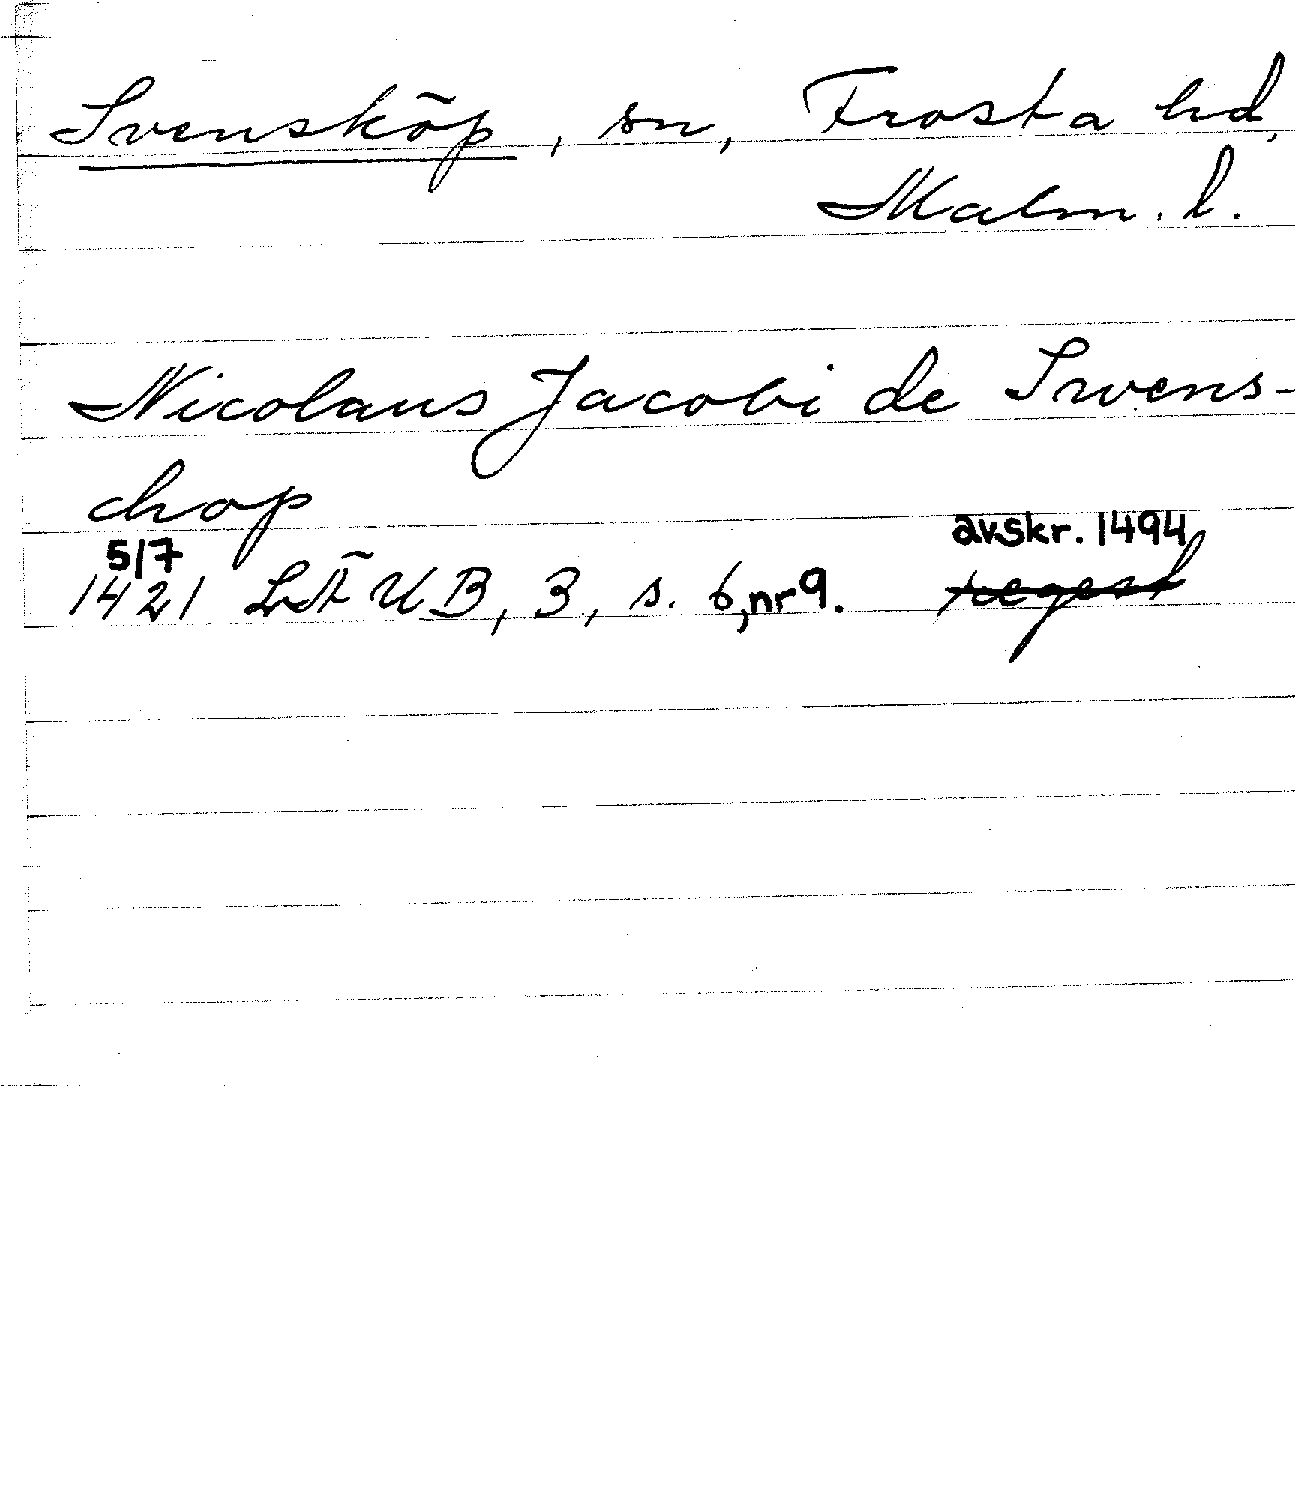 Svensköp, sn, Frosta hd,
Malm. l.
Nicolaus Jacobi de Swens-
chop
5/7 avskr. 1494
1421 LÄUB, 3, s. 6, nr 9. regest